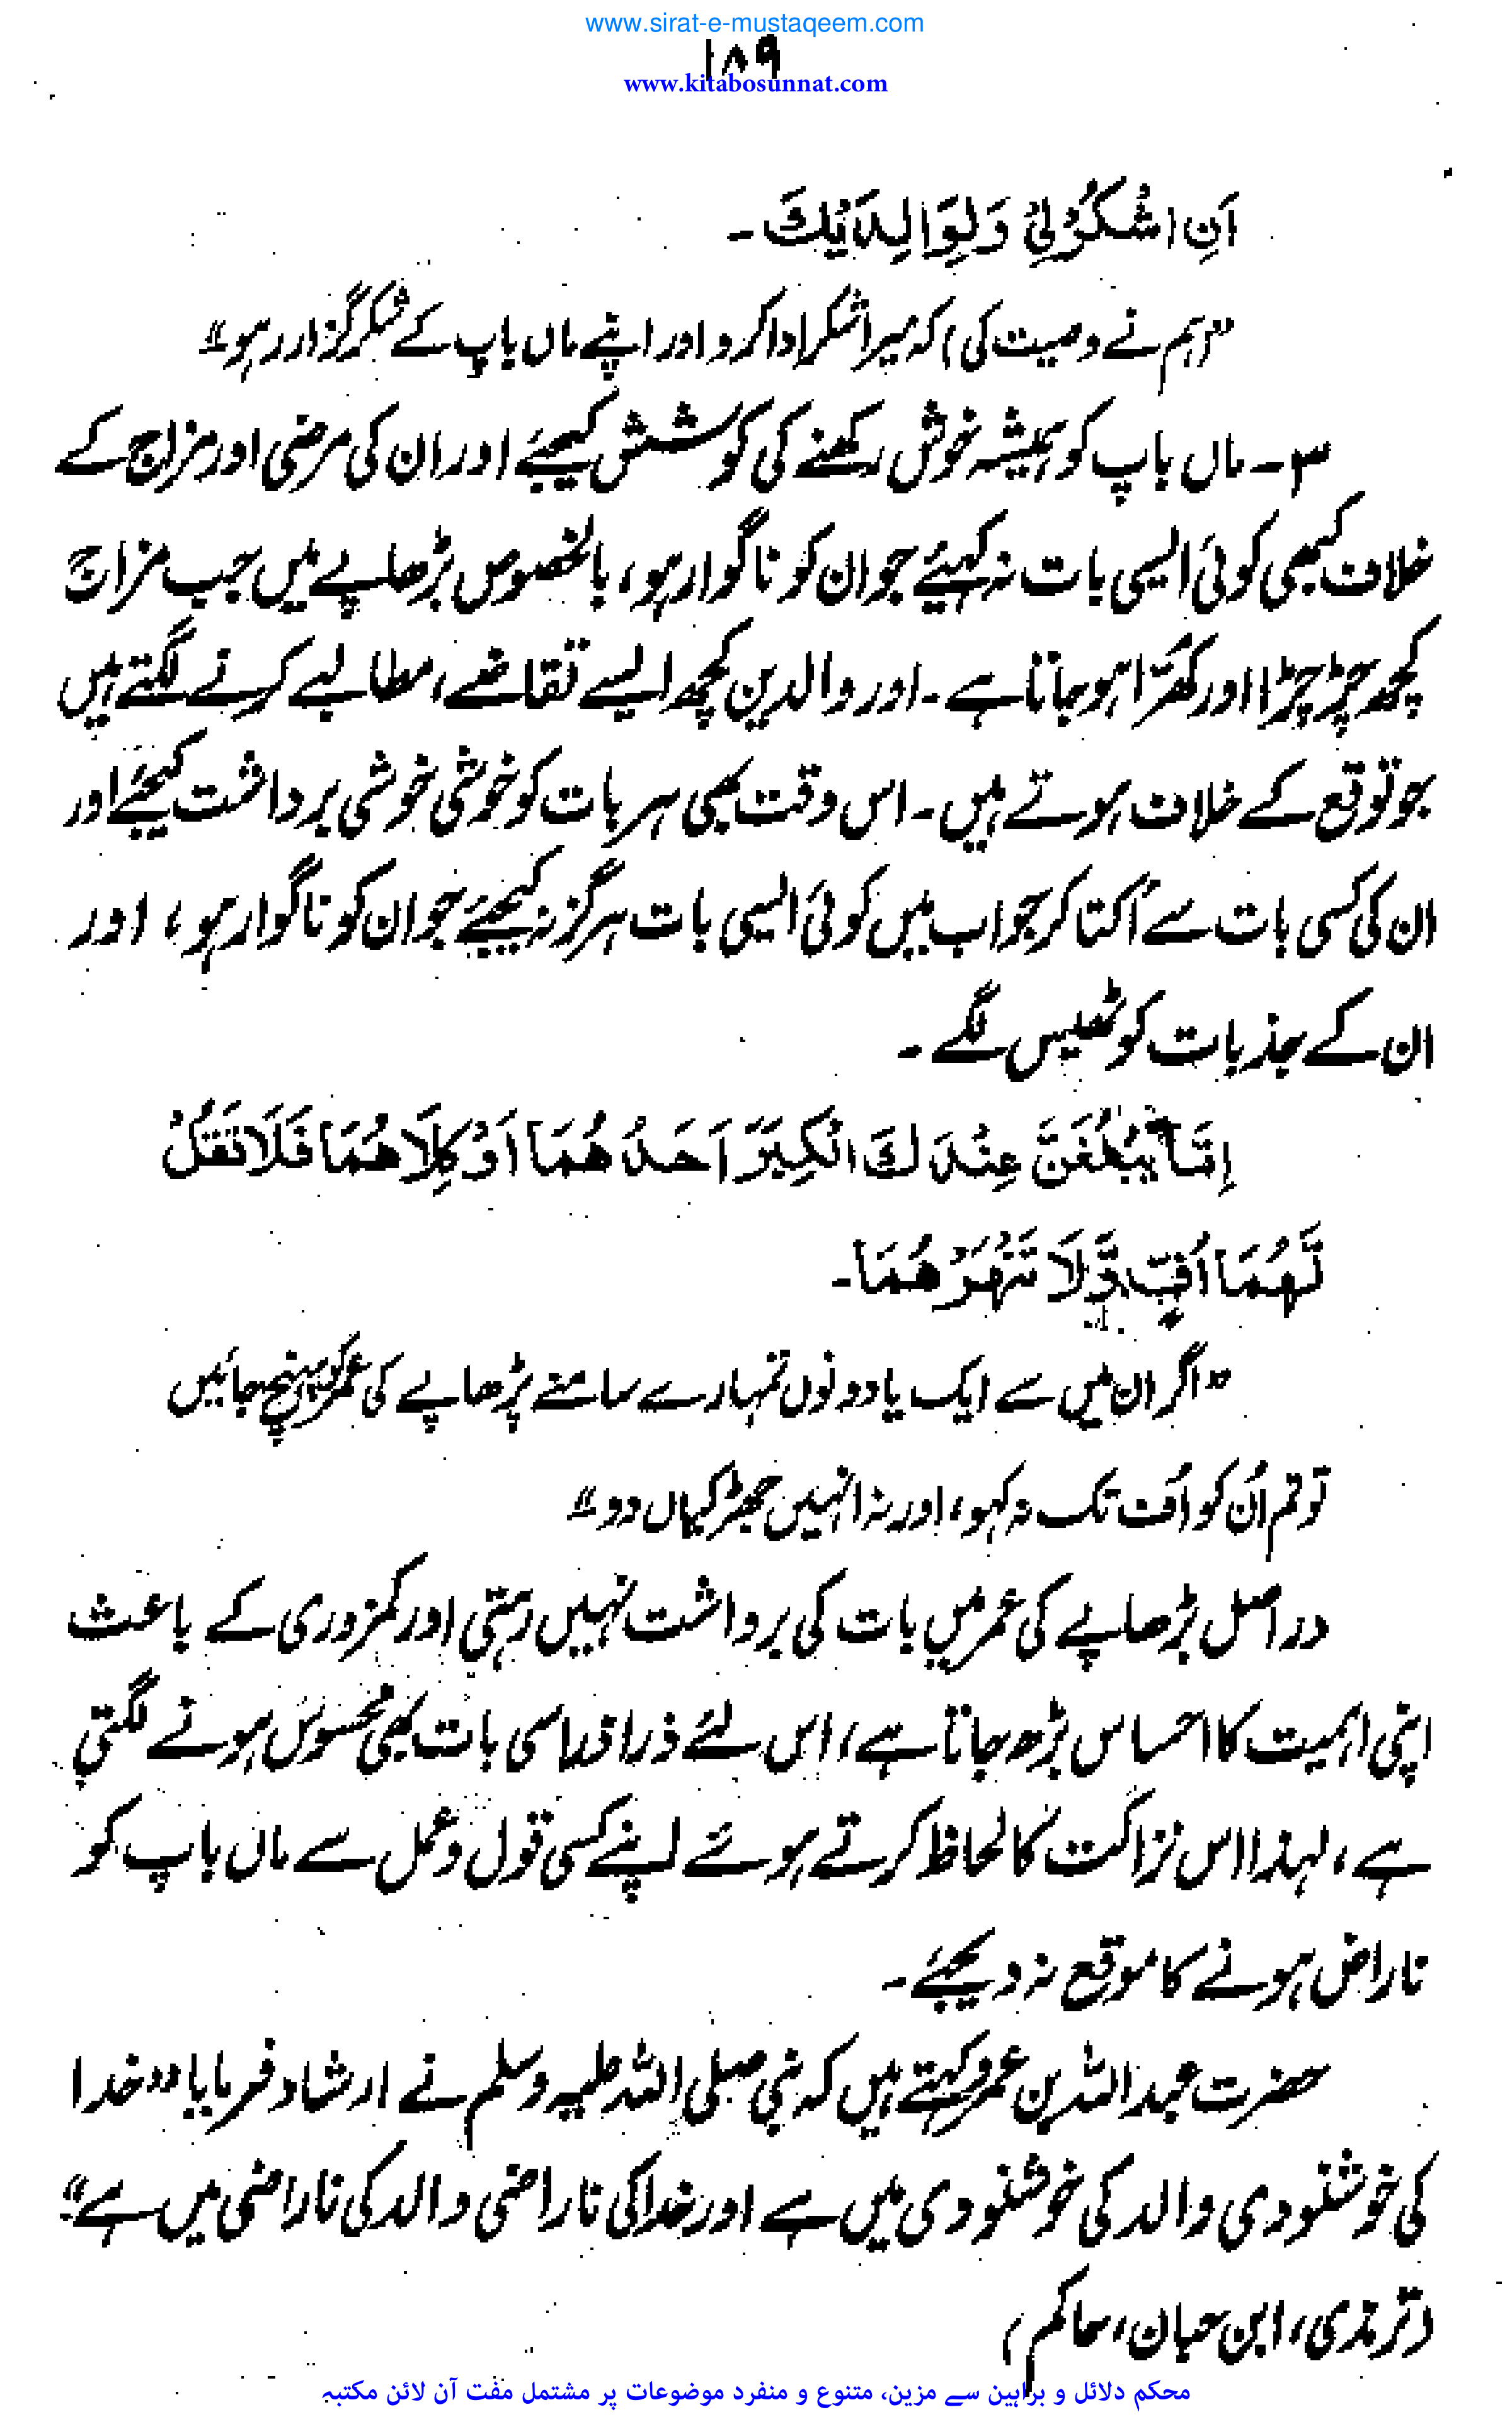 www.sirat-e-mustaqeem.com
۱۸۹
www.kitabosunnat.com
اَنِ اشْكُرْ لِيْ وَلِوَالِدَيْكَ۔
”(ہم نے وصیت کی) کہ میرا شکر ادا کرو اور اپنے ماں باپ کے شکر گزار رہو“
۳۔ ماں باپ کو ہمیشہ خوش رکھنے کی کوشش کیجئے اور ان کی مرضی اور مزاج کے
خلاف کبھی کوئی ایسی بات نہ کہیئے جو ان کو ناگوار ہو، بالخصوص بڑھاپے میں جب مزاج
کچھ چڑچڑا اور کھرّا ہو جاتا ہے۔ اور والدین کچھ ایسے تقاضے، مطالبے کرنے لگتے ہیں
جو توقع کے خلاف ہوتے ہیں۔ اس وقت بھی ہر بات کو خوشی خوشی برداشت کیجئے اور
ان کی کسی بات سے اُکتا کر جواب میں کوئی ایسی بات ہرگز نہ کیجیے جو ان کو ناگوار ہو، اور
ان کے جذبات کو ٹھیس لگے۔
اِمَّا يَبْلُغَنَّ عِنْدَكَ الْكِبَرَ اَحَدُهُمَا اَوْ كِلَاهُمَا فَلَا تَقُلْ
لَّهُمَا اُفٍّ وَّلَا تَنْهَرْهُمَا۔
”اگر ان میں سے ایک یا دونوں تمہارے سامنے بڑھاپے کی عمر کو پہنچ جائیں
تو تم اُن کو اُف تک نہ کہو، اور نہ انہیں جھڑکیاں دو“
دراصل بڑھاپے کی عمر میں بات کی برداشت نہیں رہتی اور کمزوری کے باعث
اپنی اہمیت کا احساس بڑھ جاتا ہے، اس لئے ذرا ذرا سی بات بھی محسوس ہونے لگتی
ہے، لہذا اس نزاکت کا لحاظ کرتے ہوئے اپنے کسی قول و عمل سے ماں باپ کو
ناراض ہونے کا موقع نہ دیجئے۔
حضرت عبداللہ بن عمرو کہتے ہیں کہ نبی صلی اللہ علیہ وسلم نے ارشاد فرمایا ”خدا
کی خوشنودی والد کی خوشنودی میں ہے اور خدا کی ناراضی والد کی ناراضی میں ہے“
(ترمذی، ابن حبان، حاکم)
محکم دلائل و براہین سے مزین، متنوع و منفرد موضوعات پر مشتمل مفت آن لائن مکتبہ